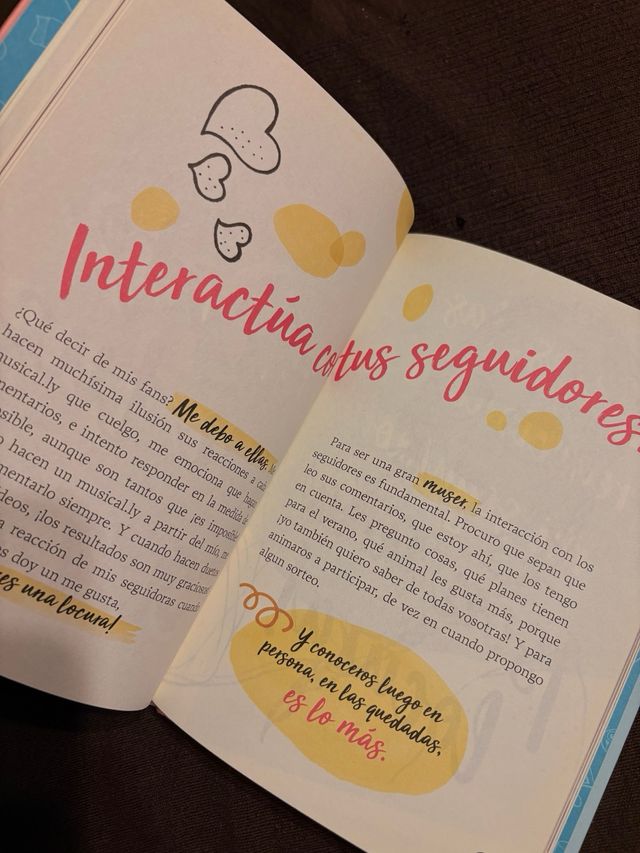 Interactúa con tus seguidores
¿Qué decir de mis fans? Me debo a ellas. Me
hacen muchísima ilusión sus reacciones a cada
musical.ly que cuelgo, me emociona que hagan
mentarios, e intento responder en la medida de
sible, aunque son tantos que ¡es imposible
o hacen un musical.ly a partir del mío,
mentarlo siempre. Y cuando hacen
deos, ¡los resultados son muy
a reacción de mis seguidoras cuando
es doy un me gusta,
es una locura!
Para ser una gran muser, la interacción con los
seguidores es fundamental. Procuro que sepan que
leo sus comentarios, que estoy ahí, que los tengo
en cuenta. Les pregunto cosas, qué planes tienen
para el verano, qué animal les gusta más, porque
¡yo también quiero saber de todas vosotras! Y para
animaros a participar, de vez en cuando propongo
algun sorteo.
Y conoceros luego en
persona, en las quedadas,
es lo más.